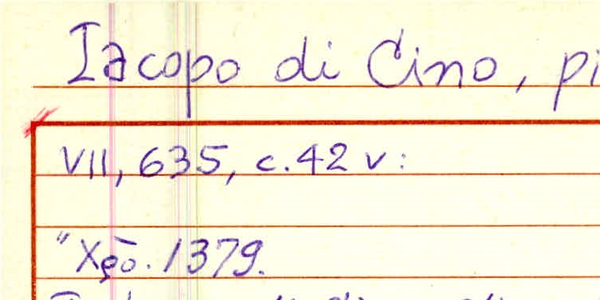 Iacopo di Cino, pi
VII, 635, c. 42 v:
"Xp̄o. 1379.